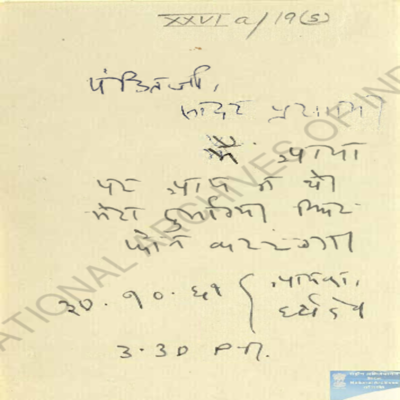 XXVI a/19(5)
पंडितजी,
सादर प्रणाम।
मैं आया
पर आप न थे
मेरा दुर्भाग्य फिर
फोन करूंगा
२०.१०.६१ आपका,
3.30 P.M.
NATIONAL ARCHIVES OF INDIA